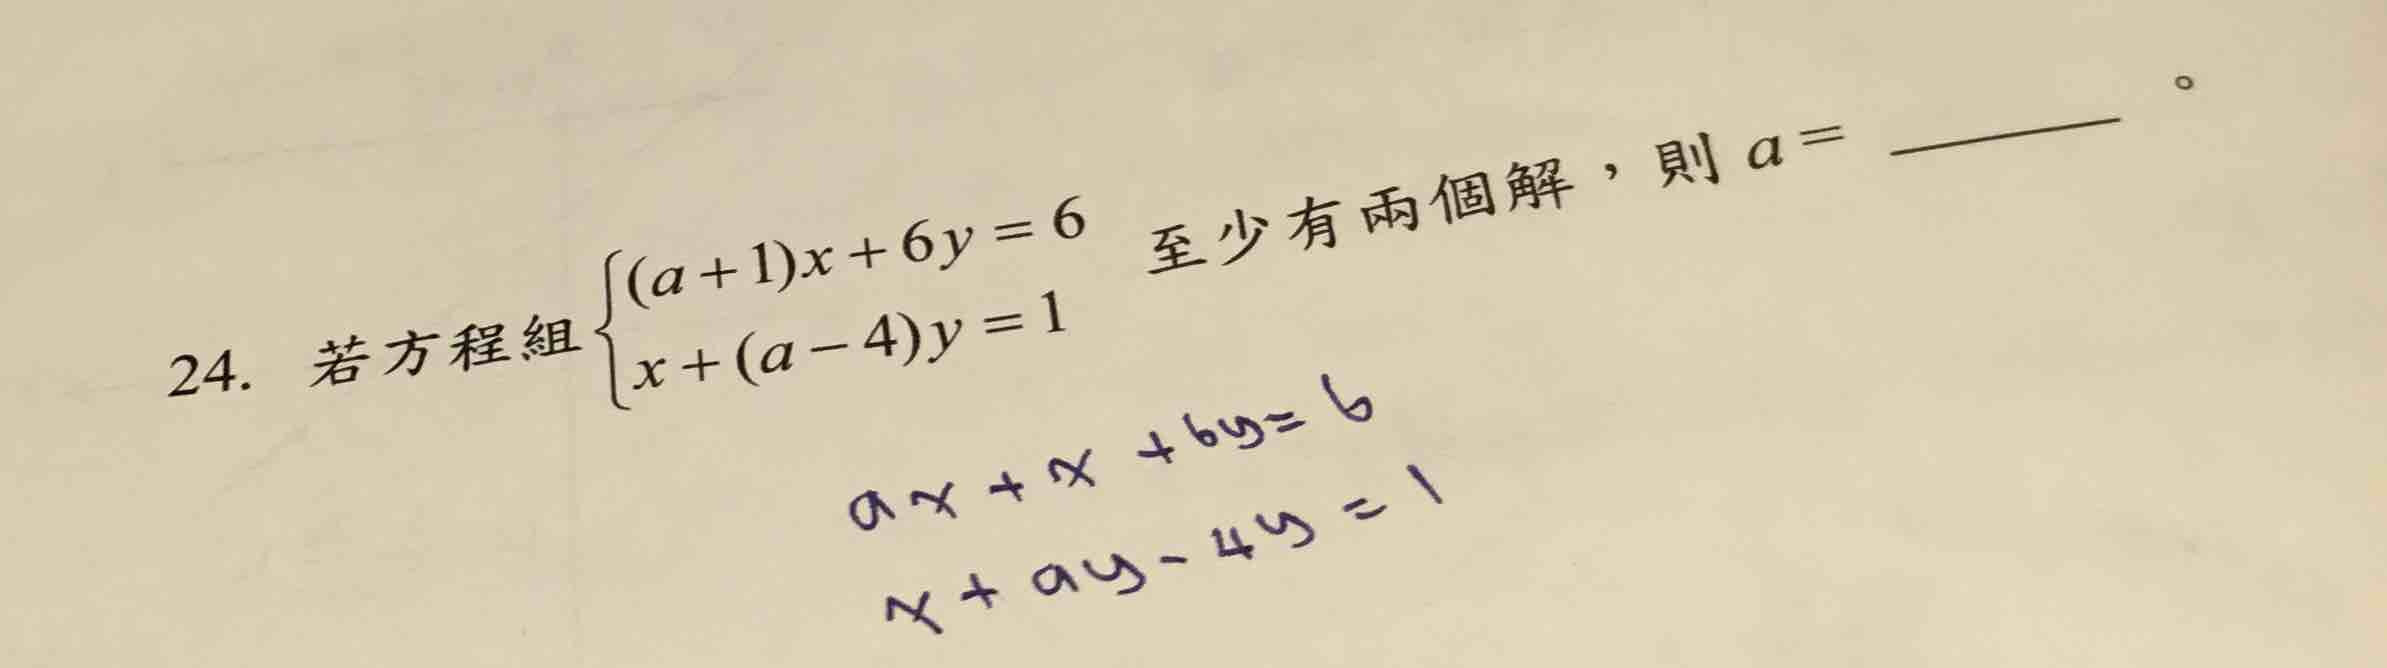 24. 若方程組 { (a+1)x+6y=6 至少有兩個解，則 a= ______ 。
x+(a-4)y=1
ax+x+6y=6
x+ay-4y=1